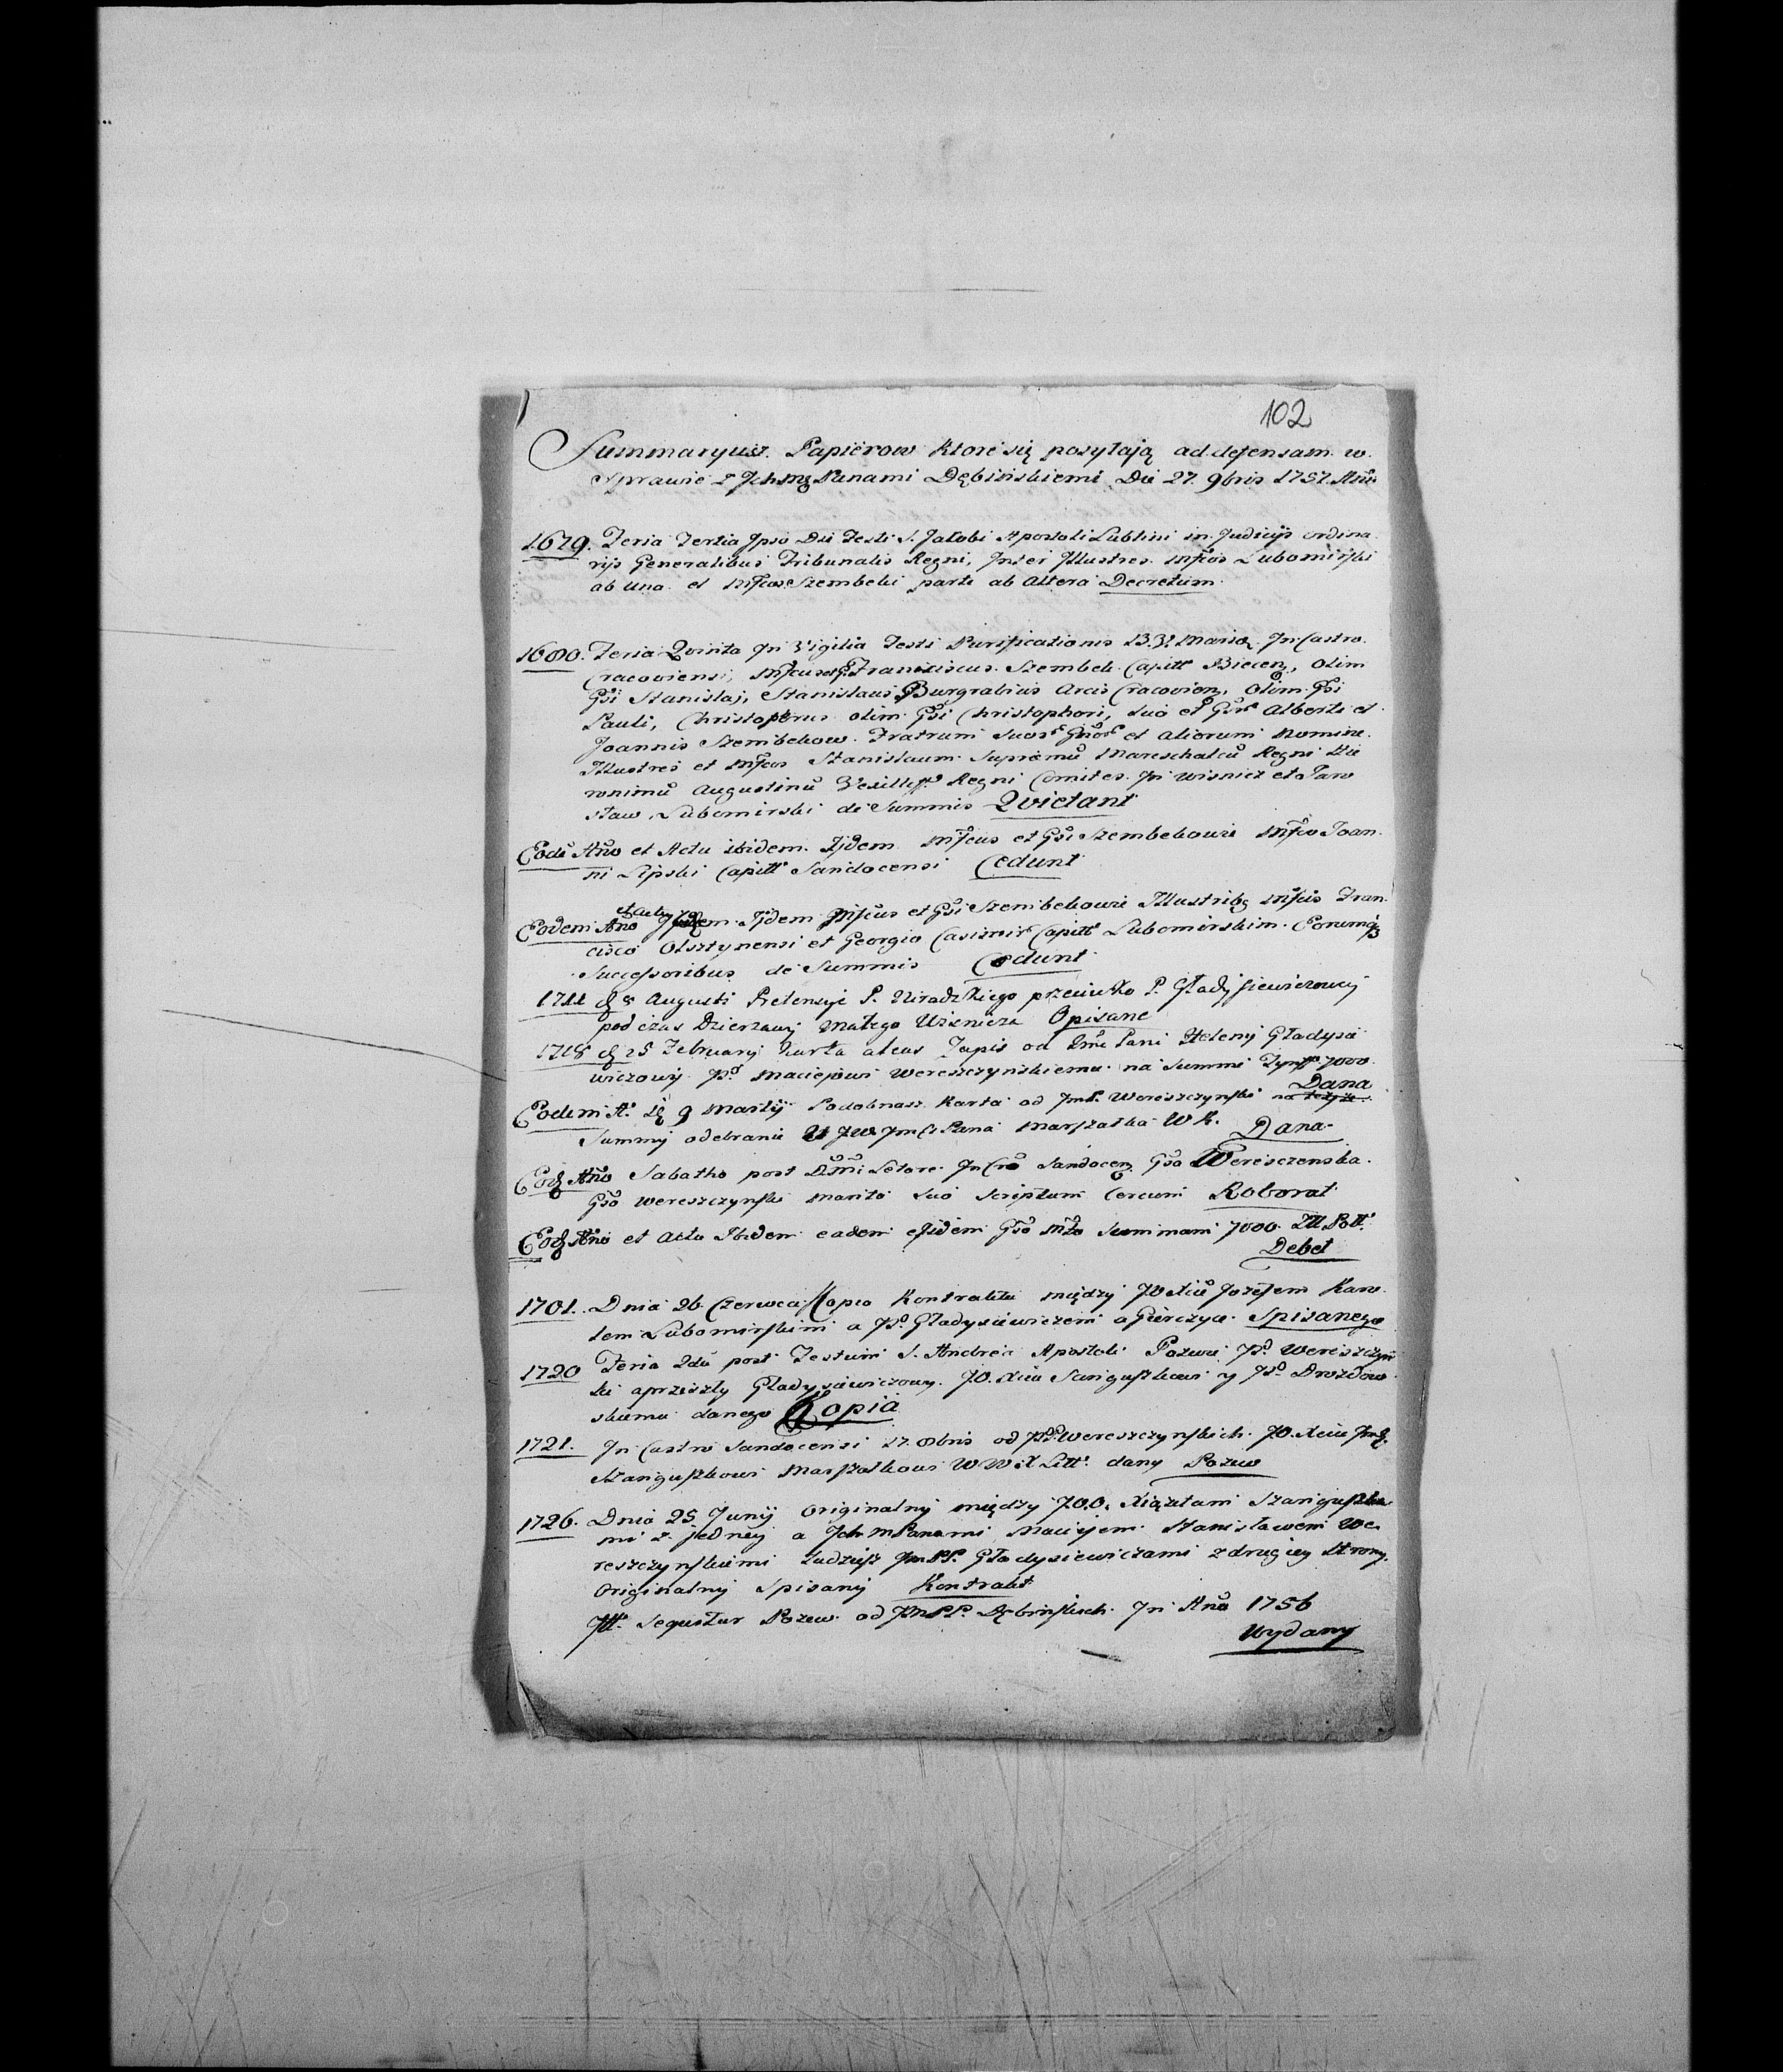 102
Summaryusz Papierow ktore się posyłają ad defensam w
Sprawie z Ichmę Panami Dębinskiemi Die 27. 9bris 1757. Ann
1679. Feria Tertia Ipso Die Festi S. Jacobi Apostoli Lublini in Judicijs ordina
rijs Generalibus Tribunalis Regni, Inter Illustres Mfcos Lubomirski
ab una et Mfcos Szembeki parte ab altera Decretum.
1680. Feria Qvinta In Vigilia Festi Purificationis B. V. Mariæ In Castro
Cracoviensi, Franciscus Szembek Capitt Biecen, olim
Gsi Stanislaj, Stanislaus Burgrabius Arcis Cracovien, olim Gsi
Pauli, Christophorus olim Gsi Christophori, suo et Alberti et
Joannis Szembekow Fratrum et aliorum Nomine
Illustres et Mfcos Stanislaum Supremũ Mareschalcũ Regni Hie
ronimũ Augustinũ Regni Comites In Wisnicz et Jaro
sław Lubomirski de Summis Qvietant
Eodē Año et Actu ibidem Ijdem Mfcus et Gsi Szembekowie Mfco Joan
ni Lipski Capitt Sandecensi Cedunt
Eodem Año et actu Ijdem Mfcus et Gsi Szembekowie Illustribq Mfcis Fran
cisco Olsztynensi et Georgio Casimir Capitt Lubomirskim Eorumqz
Successoribus de Summis Cedunt
1711 8 Augusti Pretensyi P. przeciwko P. Gładysiewiczowej
pod czas Dzierzawy Małego Wisnicza Opisane
1718 25 Februarij Karta Zapis od Pani Heleny Gładysie
wiczowy Maciejowi Wereszczynskiemu na Summe 7000
Dana
Eodem A. 9 Martij Podobnasz Karta od Wereszczynski
Summy odebranie Pana Marszałka W K. Dana
Año Sabatho post Dmi Letare In Cro Sandecen Gsa Weresczenska
Gso Wereszczynski Marito suo Scriptum Roborat
Año et Actu Ibidem eadem eidem Gso Summam 7000
Debet
1701. Dnia 26. Czerwca Kopia Kontraktu między Jozefem Karo
lem Lubomirskim a Gładysiewiczem Spisanego
1720 Feria 2da post Festum S. Andreæ Apostoli Pozwu Wereszczyn
ski Gładysiewiczowy J.O. Sanguszkowi y Drozdow
skiemu danego Kopia
1721. In Castro Sandecensi 17. 8bris od Wereszczynskich J.O.
Szanguszkowi Marszałkowi W W X Litt. dany Pozew
1726. Dnia 25 Junij Originalny między J.O.O. Xiążętami Szanguszka
mi z jedney a Ich M Panami Maciejem Stanisławem We
reszczynskiemi tudziesz Gładysiewiczami z drugiey strony
Originalny Spisany Kontrakt
Seqvitur Pozew od Dębinskich In Año 1756
Wydany